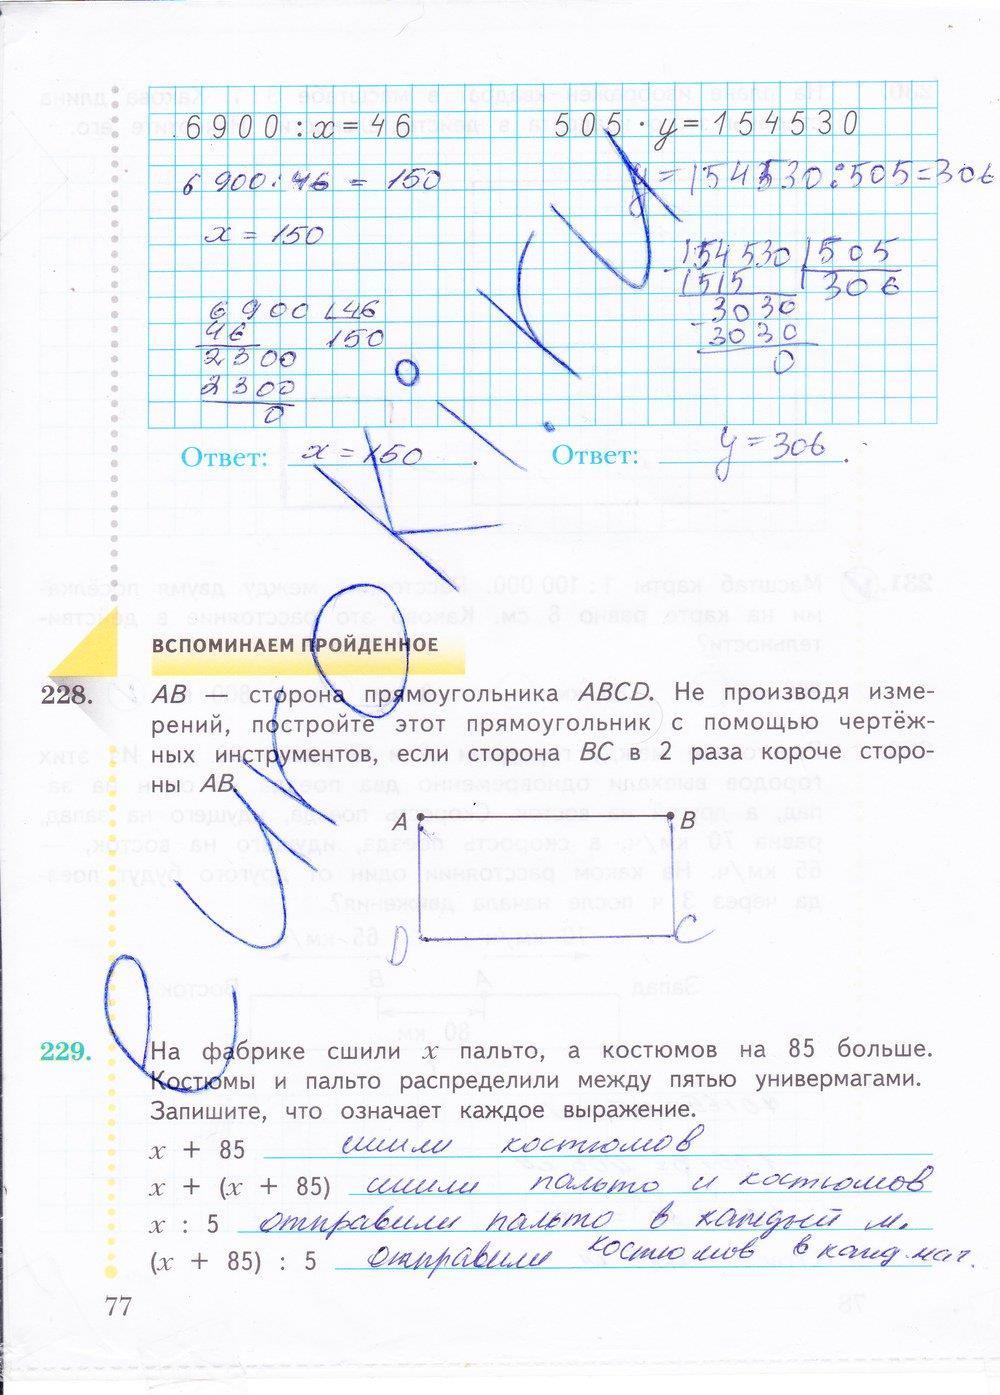 6900 : x = 46
505 · y = 154530
6 900 : 46 = 150
y = 154530 : 505 = 306
x = 150
6900 46
46 150
2300
2300
0
154530 505
1515 306
3030
3030
0
Ответ: x = 150.
Ответ: y = 306.
ВСПОМИНАЕМ ПРОЙДЕННОЕ
228. AB — сторона прямоугольника ABCD. Не производя изме-
рений, постройте этот прямоугольник с помощью чертёж-
ных инструментов, если сторона BC в 2 раза короче сторо-
ны AB.
A B
D C
229. На фабрике сшили x пальто, а костюмов на 85 больше.
Костюмы и пальто распределили между пятью универмагами.
Запишите, что означает каждое выражение.
x + 85 сшили костюмов
x + (x + 85) сшили пальто и костюмов
x : 5 отправили пальто в каждый м.
(x + 85) : 5 отправили костюмов в кажд. маг.
77
e urokiki.ru